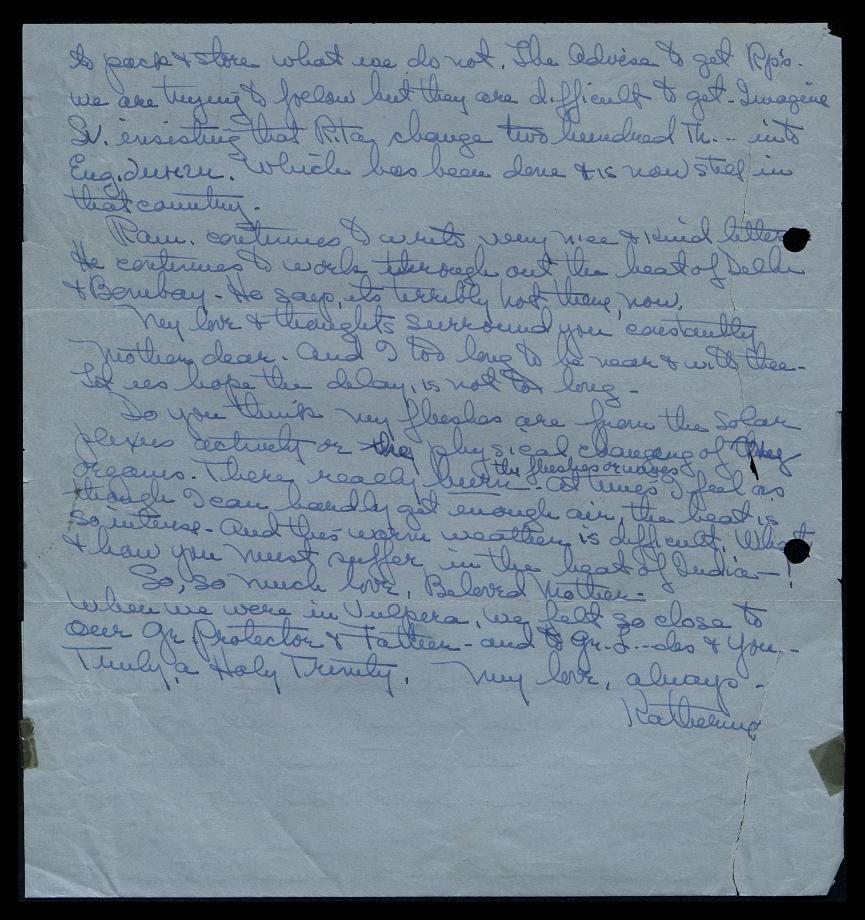 to pack & store what we do not. The Advise to get Rps.
we are trying to follow but they are difficult to get. Imagine
Sv. insisting that R.Taj change two hundred Th... into
Eng. Which has been done & is now still in
that country.
Ram. continues to write very nice & kind letters
He continues to work through out the heat of Delhi
& Bombay - He says, its terribly hot, there, now.
My love & thoughts surround you constantly
Mother, dear. And I too long to be near & with thee -
Let us hope the delay, is not too long -
Do you think my flushes are from the Solar
plexus activity or the physical changing of my
the flushes or waves
organs. There really burn - At times I feel as
though I can hardly get enough air, the heat is
so intense - And this warm weather is difficult. What
& how you must suffer in the heat of India - !
So, so much love, Beloved Mother -
When we were in Vulpera, we felt so close to
Our Gr. Protector & Father - and to Gr. I...das & You -
Truly, a Holy Trinity. My love, always -
Katherine